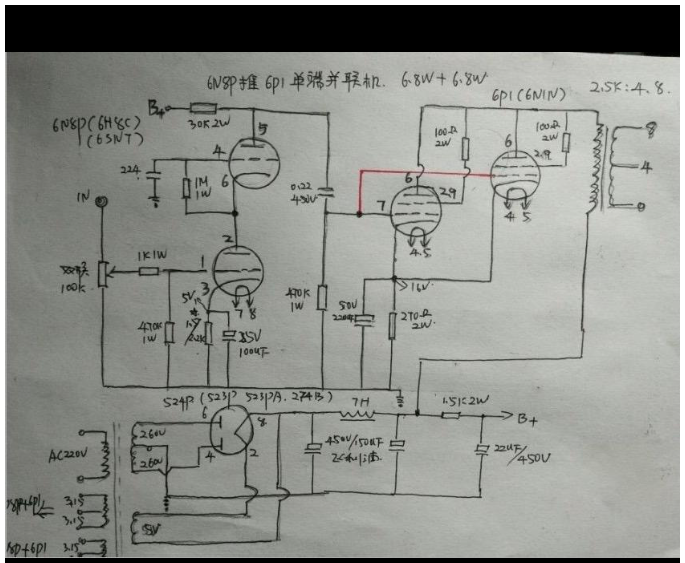 6N8P推6P1单端并联机. 6.8W+6.8W
2.5K:4.8.
6P1(6N1N)
B+
30K2W
6N8P(6H8C)
(6SN7)
5
4
6
224
1M
1W
0.22
450V
100Ω
2W
100Ω
2W
6
2.9
6
29
7
4 5
4.5
8
4
0
IN
2
1K1W
1
3
7 8
100K
5V
16V
470K
1W
2.2K
35V
100UF
470K
1W
50V
220UF
270Ω
2W
5Z4P(5Z3P 5Z3PA. 274B)
7H
1.5K2W
B+
6
8
4
2
260V
260V
AC220V
450V/150UF
22UF/450V
5V
8P+6P1
3.15
3.15
8P+6P1
3.15